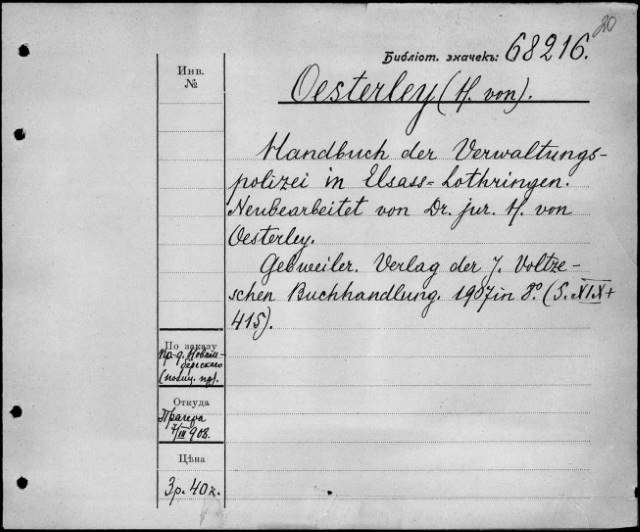 20
Библіот. значекъ: 68216.
Инв.
№
Oesterley (H. von).
Handbuch der Verwaltungs-
polizei in Elsass=Lothringen.
Neubearbeitet von Dr. jur. H. von
Oesterley.
Gebweiler. Verlag der J. Boltze-
schen Buchhandlung. 1907 in 8º. (S. XIX+
415).
По заказу
пр-д.
Откуда
7/III 908.
Цѣна
3 р. 40 к.